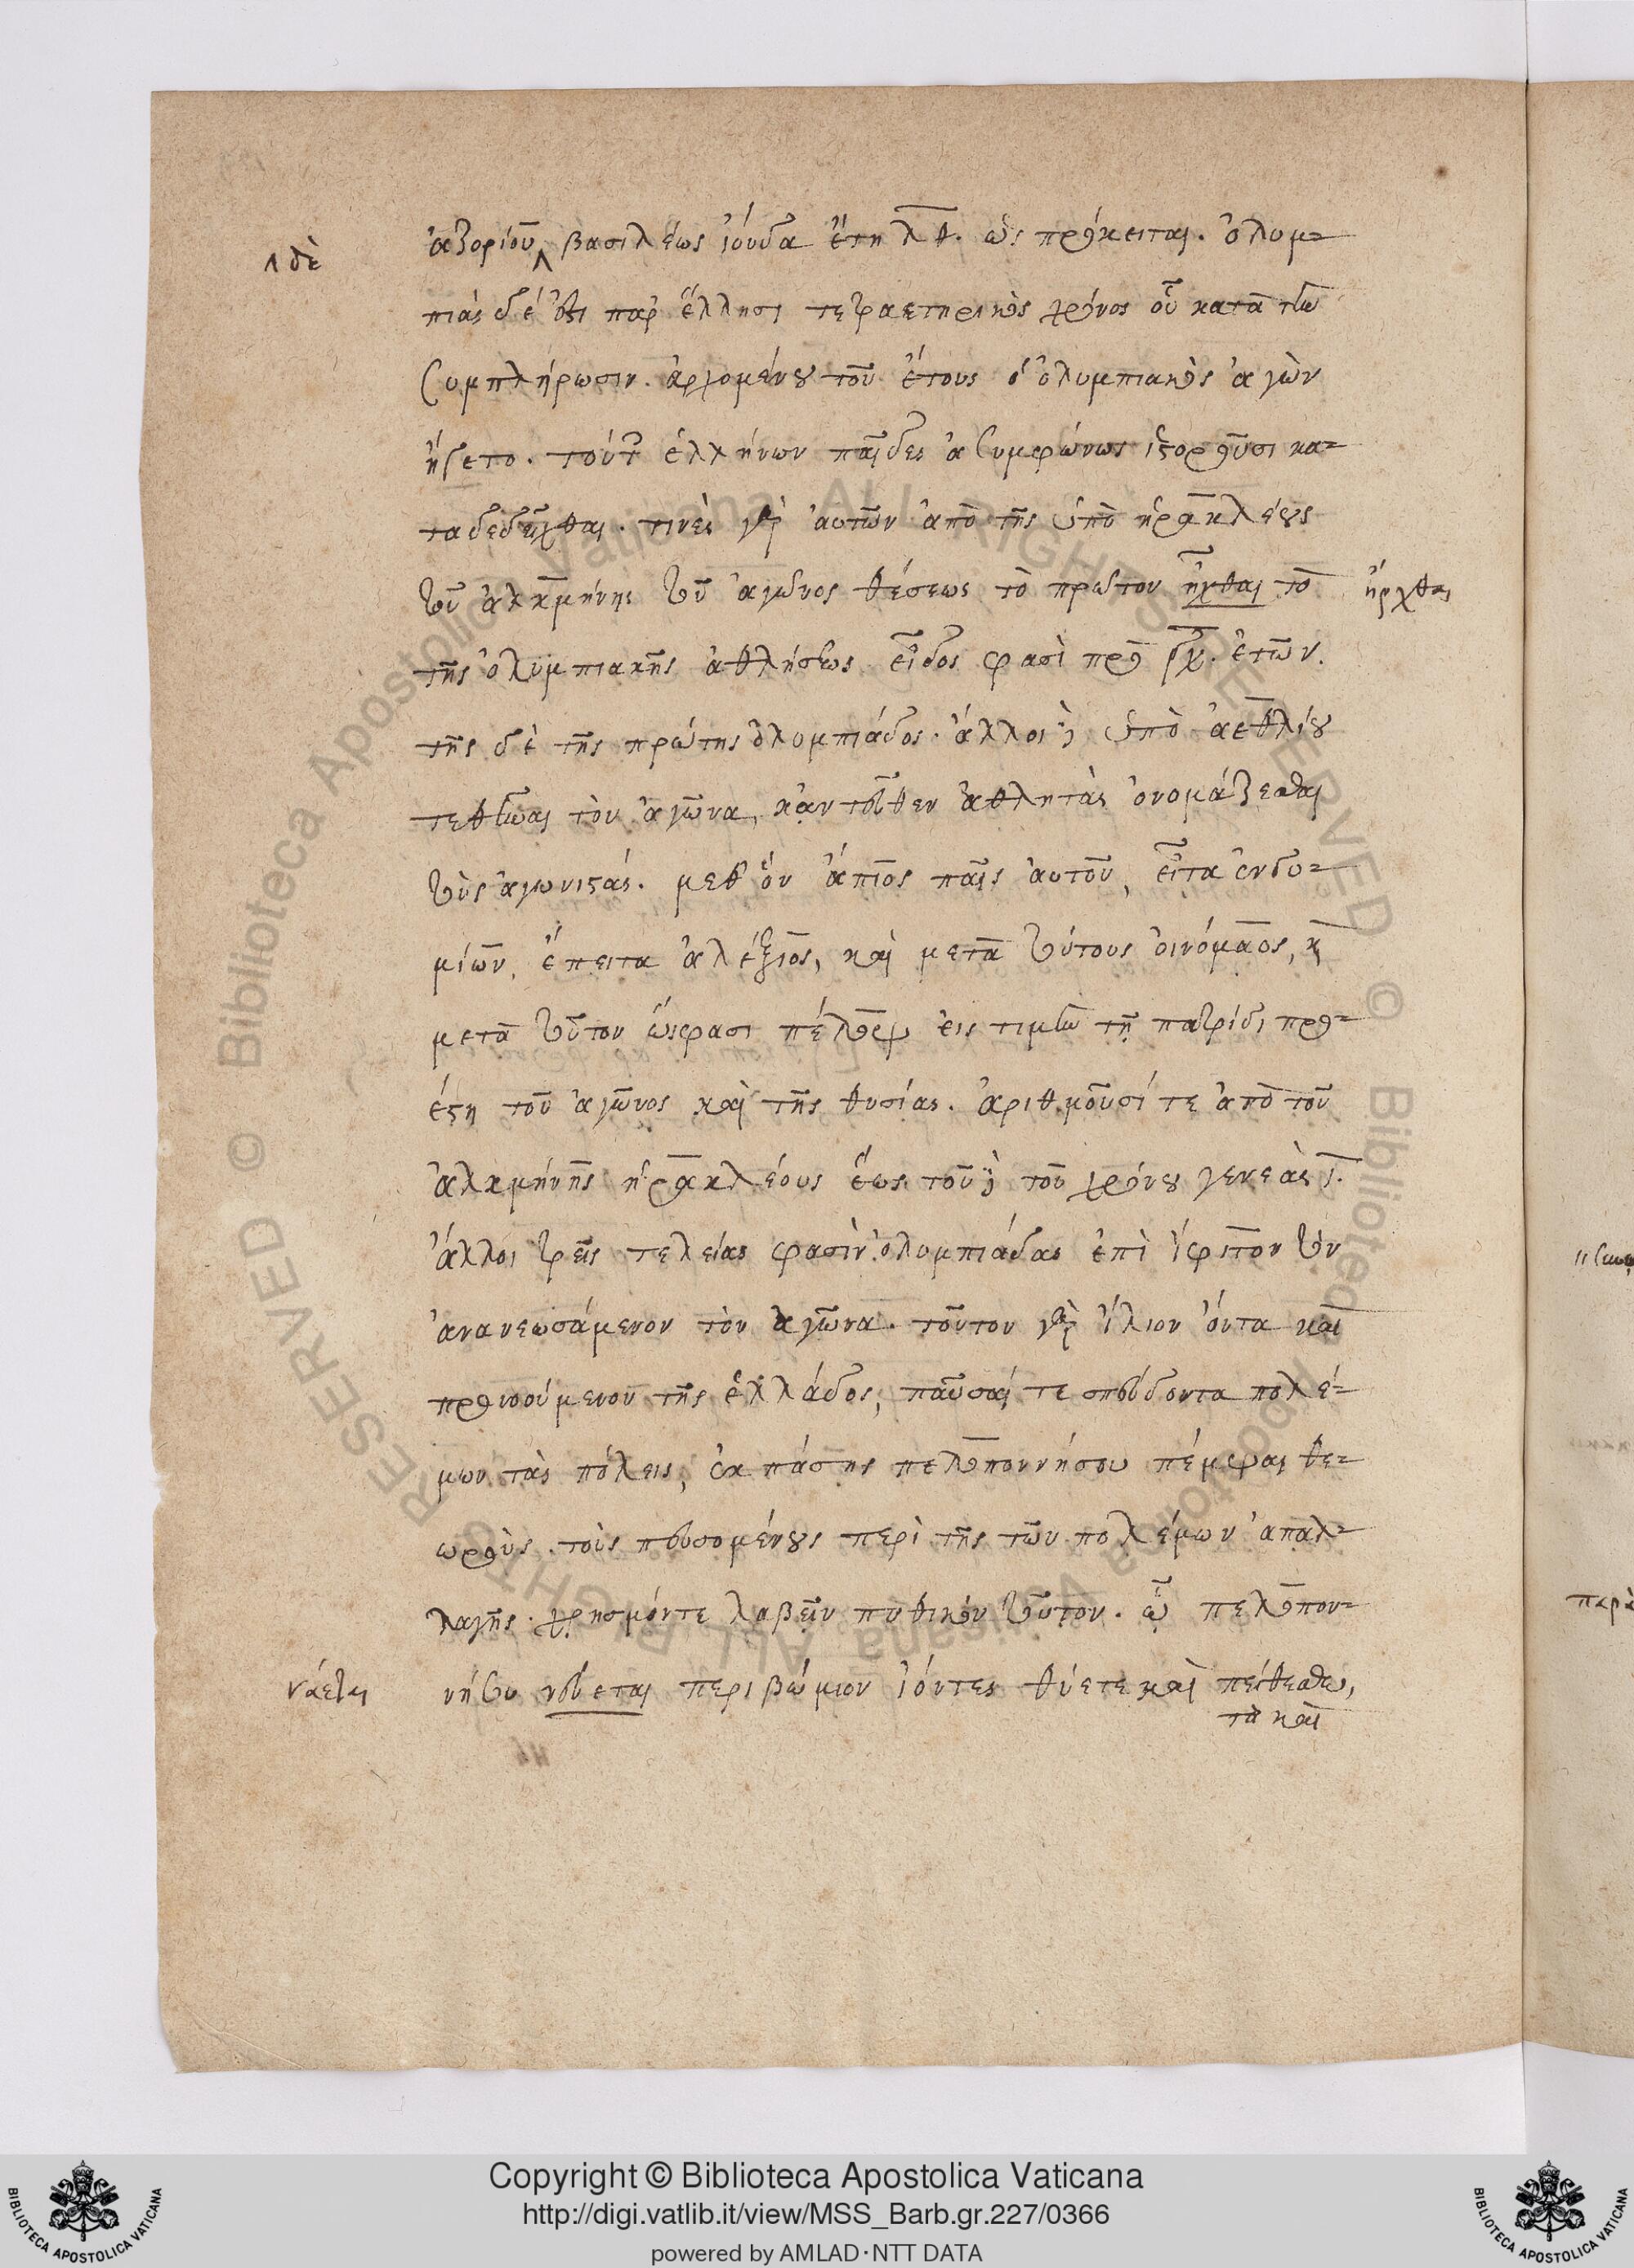 ἀζορίου βασιλέως ἰούδα ἔτη λθ. ὡς πρόκειται. ὀλυμ=
∧ δὲ
πιάς δέ ἐστι παρ' ἕλλησι τετραετηρικὸς χρόνος οὗ κατὰ τὴν
συμπλήρωσιν. ἀρχομένου τοῦ ἔτους ὁ ὀλυμπιακὸς ἀγὼν
ἤγετο. ἑλλήνων παῖδες ἀσυμφώνως ἱστοροῦσι κα=
ταδεδεῖχθαι. τινὲς γὰρ αὐτῶν ἀπὸ τῆς ὑπὸ ἡρακλέους
τοῦ ἀλκμήνης τοῦ ἀγῶνος θέσεως τὸ πρῶτον ἦχθαι τὸ
ἦρχθαι
τῆς ὀλυμπιακῆς ἀθλήσεως εἶδος φασὶ πρὸ ἐτῶν.
τῆς δὲ τῆς πρώτης ὀλυμπιάδος. ἄλλοι δὲ ὑπὸ ἀεθλίου
τεθῆναι τὸν ἀγῶνα, κἀντεῦθεν ἀθλητὰς ὀνομάζεσθαι
τοὺς ἀγωνιστάς. μεθ' ὃν ἄπιος παῖς αὐτοῦ, εἶτα ἐνδυ=
μίων, ἔπειτα ἀλέξιος, καὶ μετὰ τούτους οἰνόμαος, κ
μετὰ τοῦτον ὥς φασι πέλοψ εἰς τιμὴν τῇ πατρίδι προ=
έστη τοῦ ἀγῶνος καὶ τῆς θυσίας. ἀριθμοῦσί τε ἀπὸ τοῦ
ἀλκμήνης ἡρακλέους ἕως τοῦδε τοῦ χρόνου γενεὰς ι.
ἄλλοι τρεῖς τελείας φασὶν ὀλυμπιάδας ἐπὶ ἴφιτον τὸν
ἀνανεωσάμενον τὸν ἀγῶνα. τοῦτον γὰρ ἴλιον ὄντα καὶ
προνοούμενον τῆς ἑλλάδος, παῦσαί τε σπεύδοντα πολέ=
μων τὰς πόλεις, ἐκ πάσης πελοποννήσου πέμψαι θε=
ωροὺς. τοὺς πευσομένους περὶ τῆς τῶν πολέμων ἀπαλ=
λαγῆς. χρησμόν τε λαβεῖν πυθικὸν τοῦτον. ὦ πελοπον=
νήσου νεύεται περιβώμιον ἰόντες θύετε καὶ πείθεσθε,
ναεται
τὰ καὶ